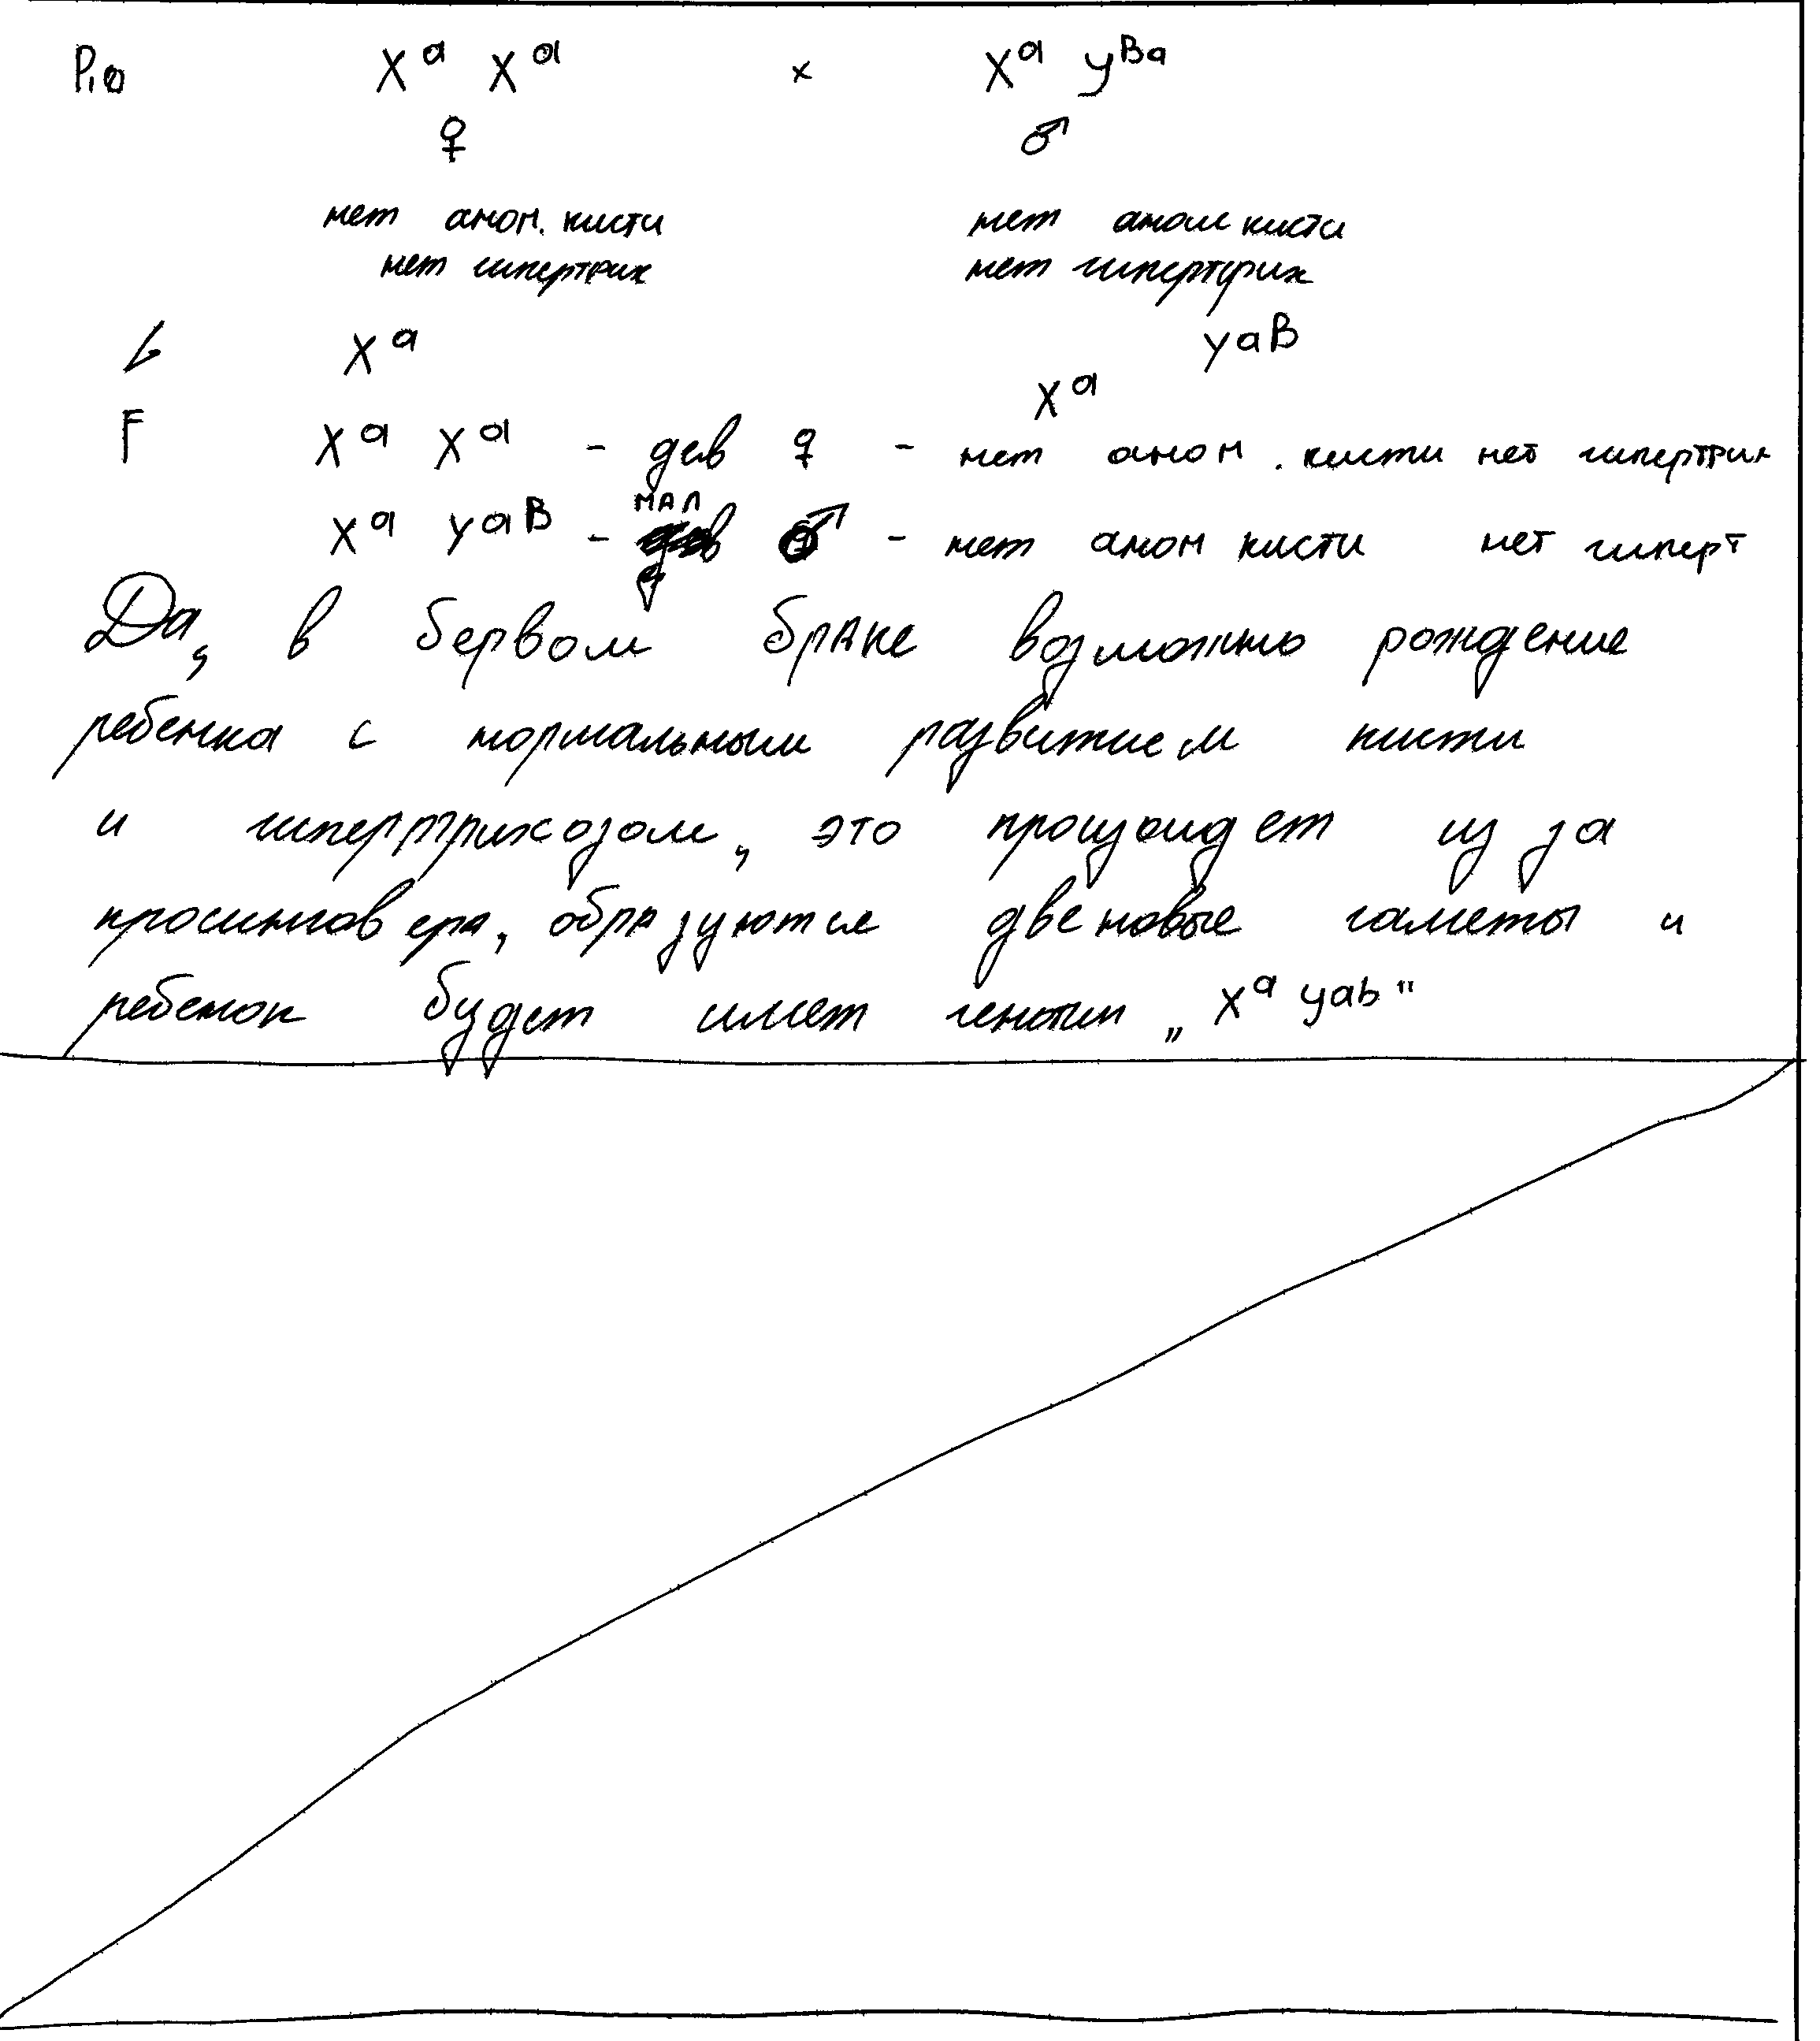 P₁₀ Xᵃ Xᵃ × Xᵃ yᴮᵃ
♀ ♂
нет аном. кисти нет аном кисти
нет гипертрих нет гипертрих
Xᵃ yaB
Xᵃ
F Xᵃ Xᵃ - дев ♀ - нет аном. кисти нет гипертрих
Xᵃ yaB - мал ♂ - нет аном кисти нет гиперт
Да, в бервом браке возможно рождение
ребенка с нормальным развитием кисти
и гипертрихозом, это произоидет из за
кросинговера, образуются две новые гаметы и
ребенок будет имет генотип „Xᵃ yab"